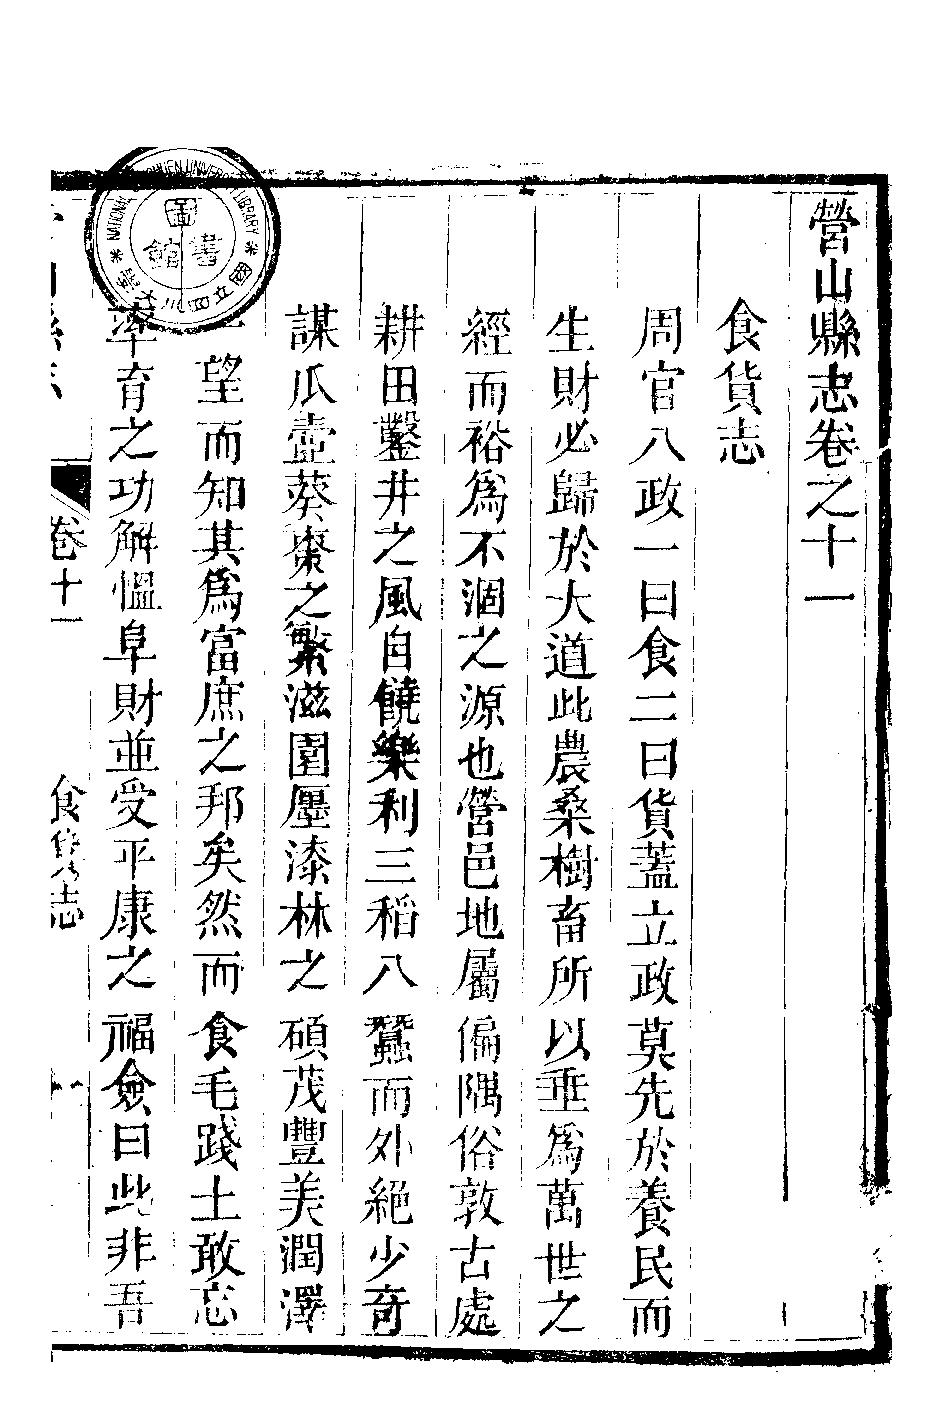 營山縣志卷之十一
食貨志
周官八政一曰食二曰貨蓋立政莫先於養民而
生財必歸於大道此農桑樹畜所以垂爲萬世之
經而裕爲不涸之源也營邑地屬偏隅俗敦古處
耕田鑿井之風自饒樂利三稻八蠶而外絕少奇
謀瓜壼葵棗之繁滋園廛漆林之碩茂豐美潤澤
一望而知其爲富庶之邦矣然而食毛踐土敢忘
率育之功解慍阜財並受平康之福僉曰此非吾
卷十一
食貨志
圖書館
國立四川大學
NATIONAL UNIVERSITY LIBRARY